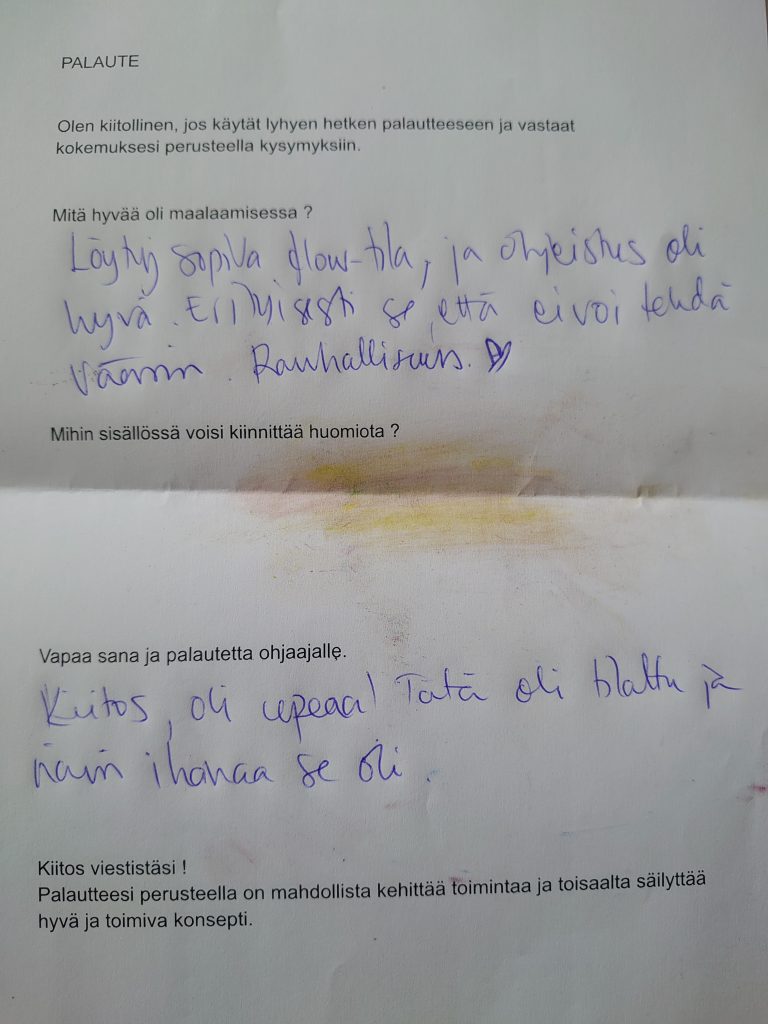 PALAUTE
Olen kiitollinen, jos käytät lyhyen hetken palautteeseen ja vastaat
kokemuksesi perusteella kysymyksiin.
Mitä hyvää oli maalaamisessa ?
Löytyi sopiva flow-tila, ja ohjeistus oli
hyvä. Erityisesti se, että ei voi tehdä
väärin. Rauhallisuus.
Mihin sisällössä voisi kiinnittää huomiota ?
Vapaa sana ja palautetta ohjaajalle.
Kiitos, oli upeaa! Tätä oli tilattu ja
näin ihanaa se oli.
Kiitos viestistäsi !
Palautteesi perusteella on mahdollista kehittää toimintaa ja toisaalta säilyttää
hyvä ja toimiva konsepti.